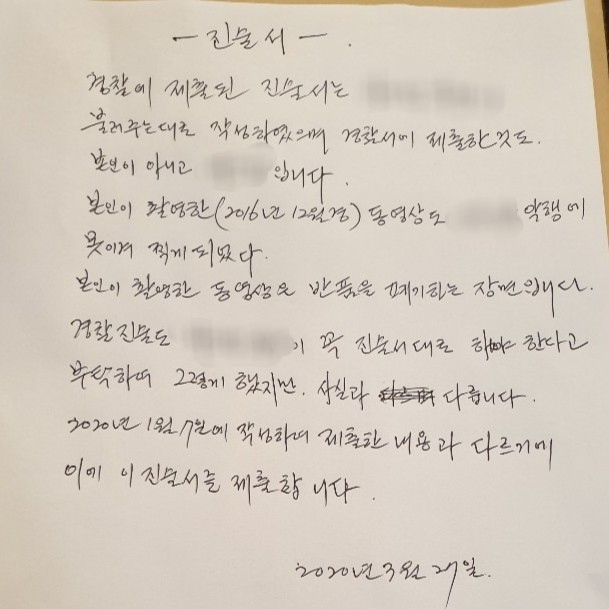 - 진술서 - .
경찰에 제출된 진술서는
불러주는대로 작성하였으며 경찰서에 제출한것도.
본인이 아니고 입니다.
본인이 촬영한(2016년 12월경) 동영상도 악행에
못이겨 찍게 되었다.
본인이 촬영한 동영상은 반품을 폐기하는 장면입니다.
경찰진술도 이 꼭 진술서대로 하야 한다고
부탁하여 그렇게 했지만. 사실과 다릅니다.
2020년 1월 7일에 작성하여 제출한 내용과 다르기에
이에 이 진술서를 제출합니다.
2020년 3월 27일.